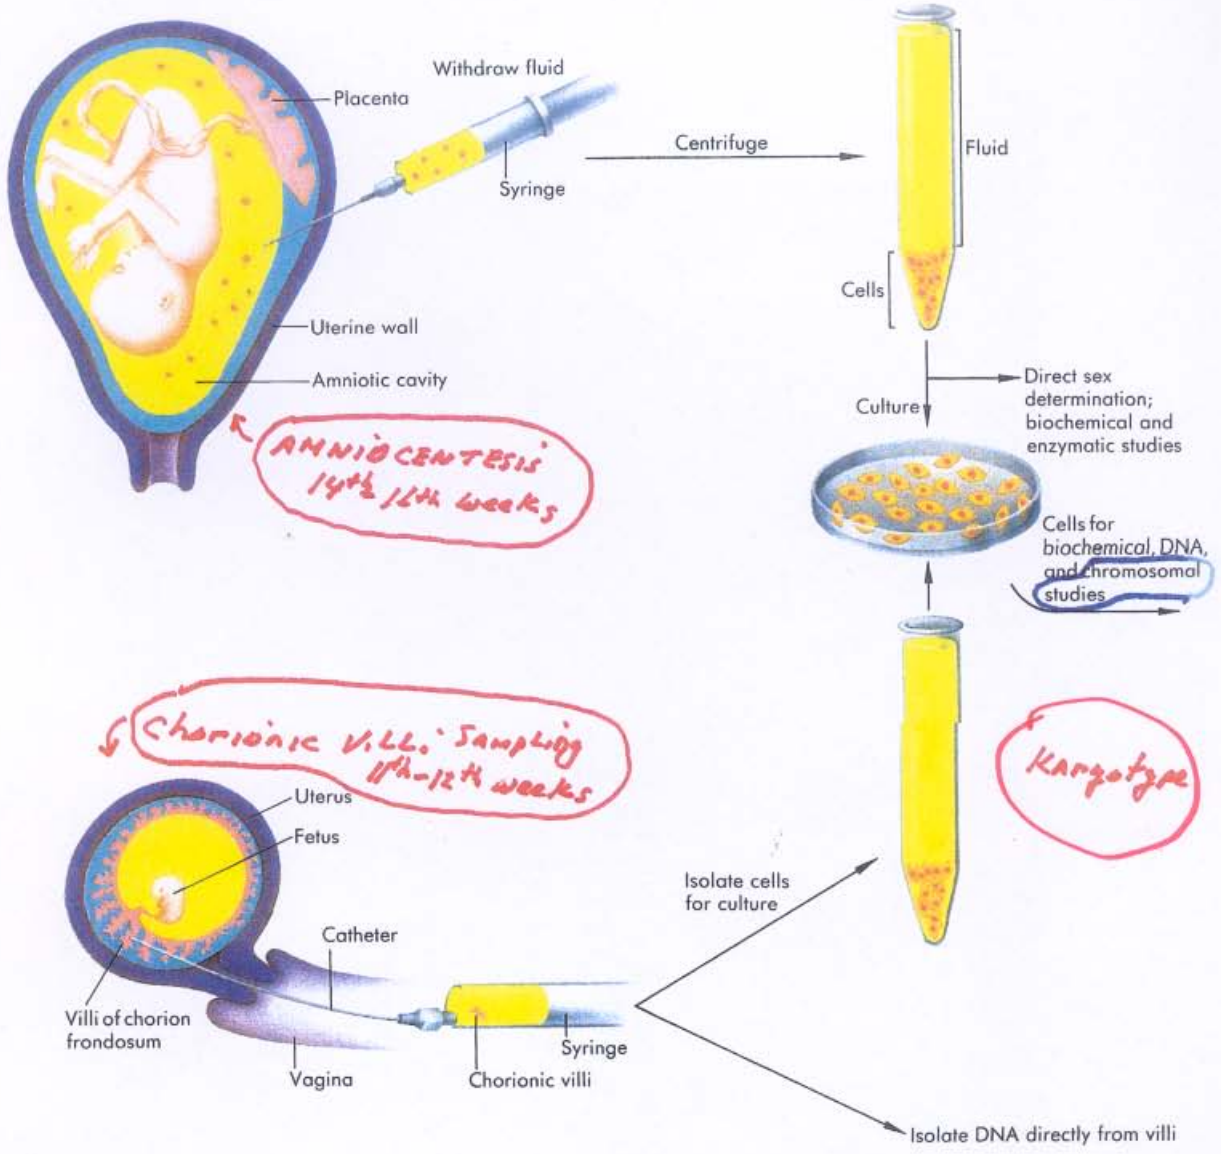 Withdraw fluid
Placenta
Syringe
Centrifuge
Fluid
Cells
Uterine wall
Amniotic cavity
AMNIOCENTESIS
14th 16th weeks
Culture
Direct sex
determination;
biochemical and
enzymatic studies
Cells for
biochemical, DNA,
and chromosomal
studies
Chorionic Villi Sampling
11th-12th weeks
Karyotype
Uterus
Fetus
Catheter
Villi of chorion
frondosum
Vagina
Syringe
Chorionic villi
Isolate cells
for culture
Isolate DNA directly from villi